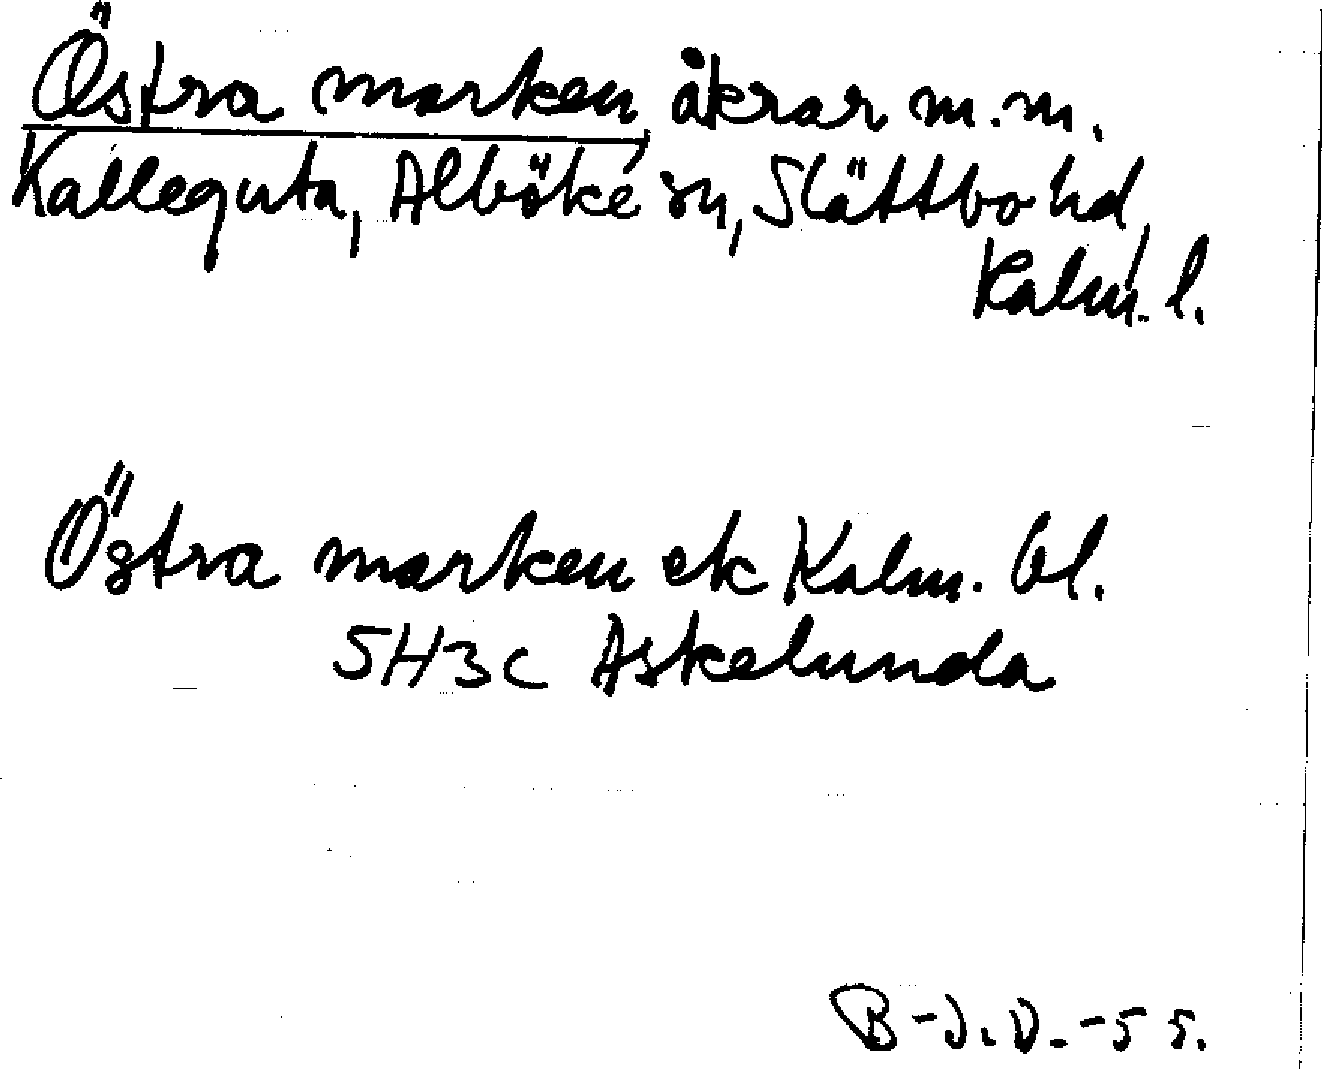 Östra marken åkrar m.m.
Kalleguta, Alböke sn, Slättbo hd,
Kalm. l.
Östra marken ek Kalm. bl.
5H3c Askelunda
B-J.D.-55.